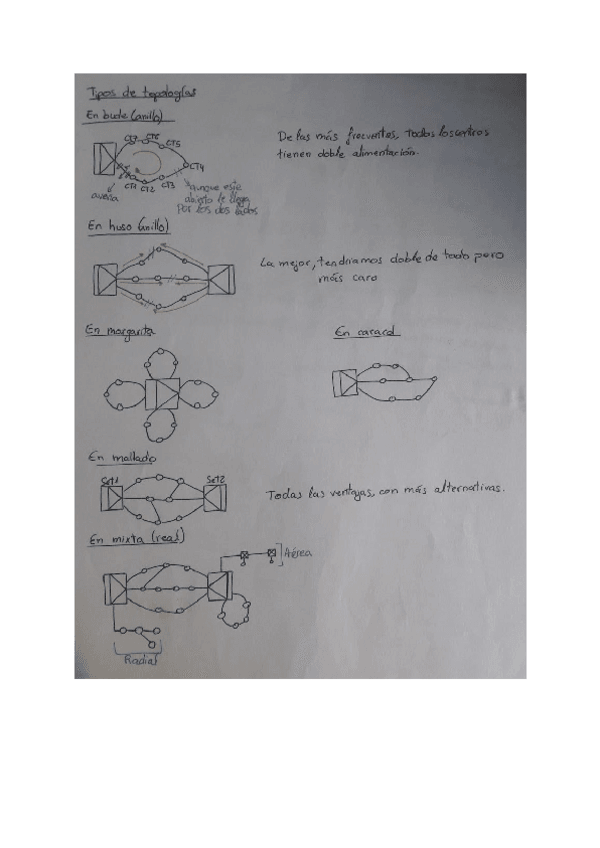 Tipos de topologías
En bucle (anillo)
CT7 CT6 CT5
CT4
CT1 CT2 CT3
avería
Aunque este
abierto le llega
por los dos lados
De las más frecuentes, todos los centros
tienen doble alimentación.
En huso (anillo)
La mejor, tendríamos doble de todo pero
más caro
En margarita
En caracol
En mallado
Set1
Set2
Todas las ventajas, con más alternativas.
En mixta (real)
Aérea
Radial